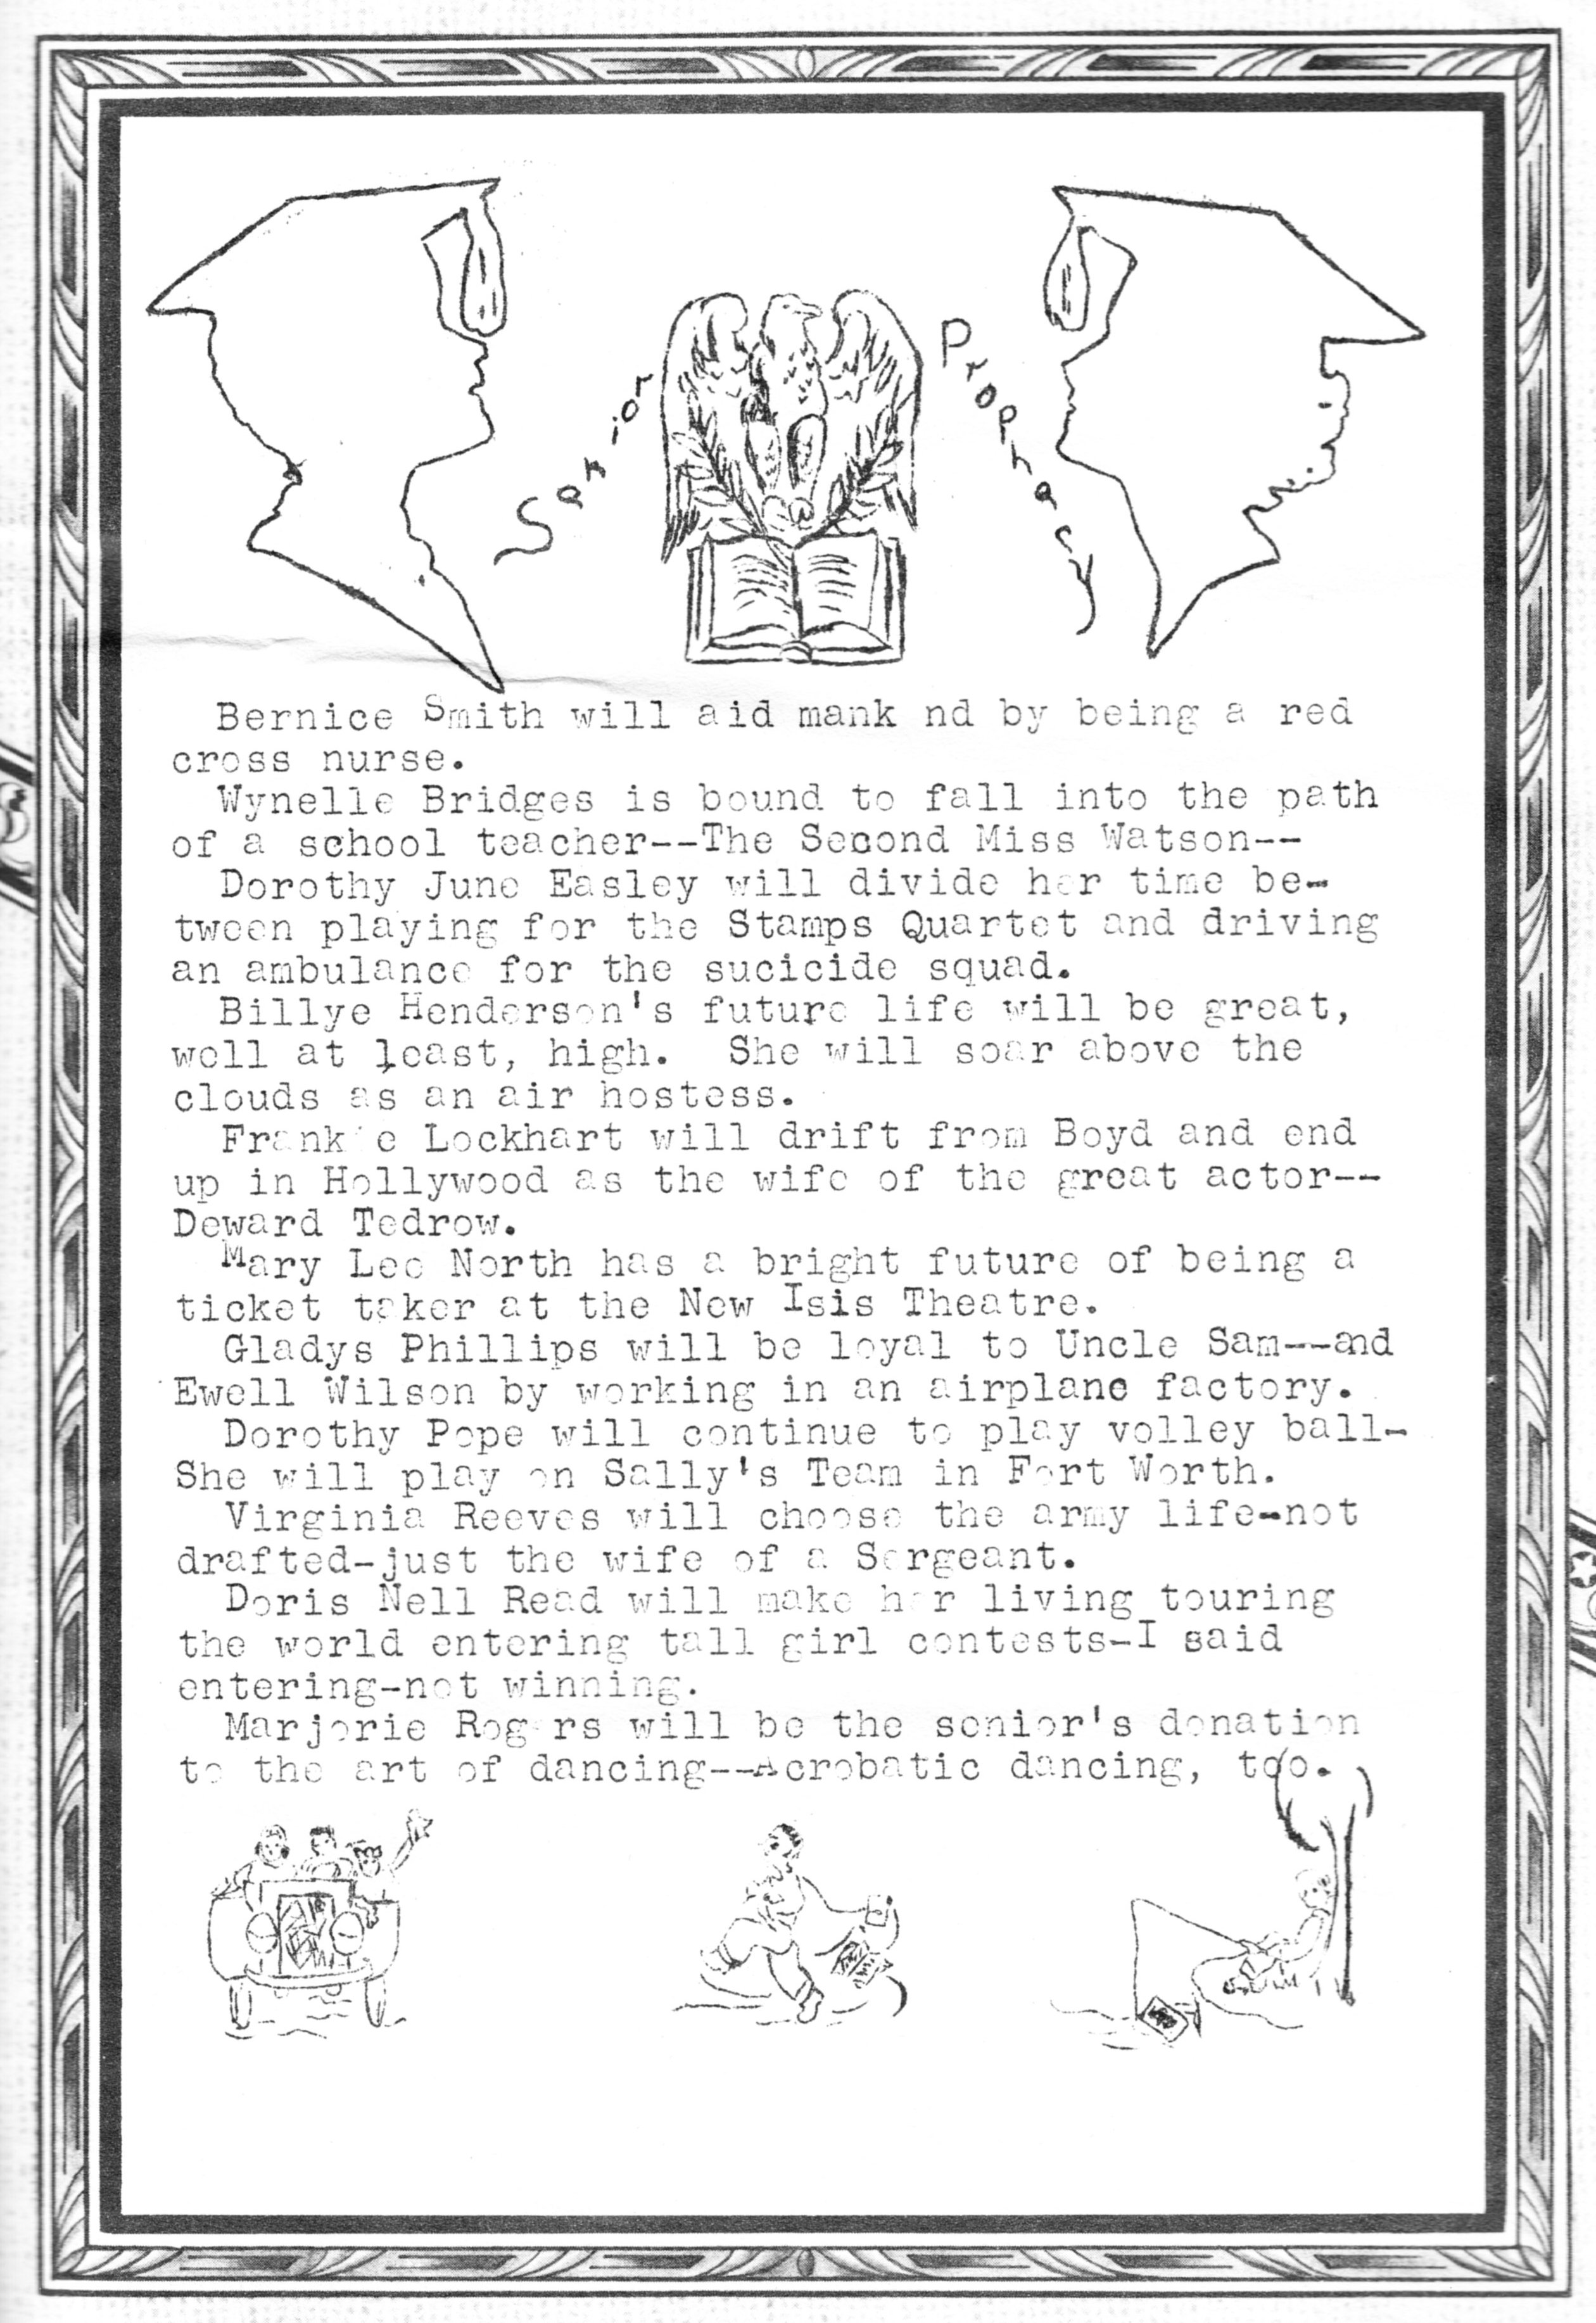 Senior Prophecy
Bernice Smith will aid mank nd by being a red
cross nurse.
Wynelle Bridges is bound to fall into the path
of a school teacher--The Second Miss Watson--
Dorothy June Easley will divide her time be-
tween playing for the Stamps Quartet and driving
an ambulance for the sucicide squad.
Billye Henderson's future life will be great,
well at least, high. She will soar above the
clouds as an air hostess.
Frankie Lockhart will drift from Boyd and end
up in Hollywood as the wife of the great actor--
Deward Tedrow.
Mary Lee North has a bright future of being a
ticket taker at the New Isis Theatre.
Gladys Phillips will be loyal to Uncle Sam--and
Ewell Wilson by working in an airplane factory.
Dorothy Pope will continue to play volley ball-
She will play on Sally's Team in Fort Worth.
Virginia Reeves will choose the army life-not
drafted-just the wife of a Sergeant.
Doris Nell Read will make her living touring
the world entering tall girl contests-I said
entering-not winning.
Marjorie Rogers will be the senior's donation
to the art of dancing--Acrobatic dancing, too.